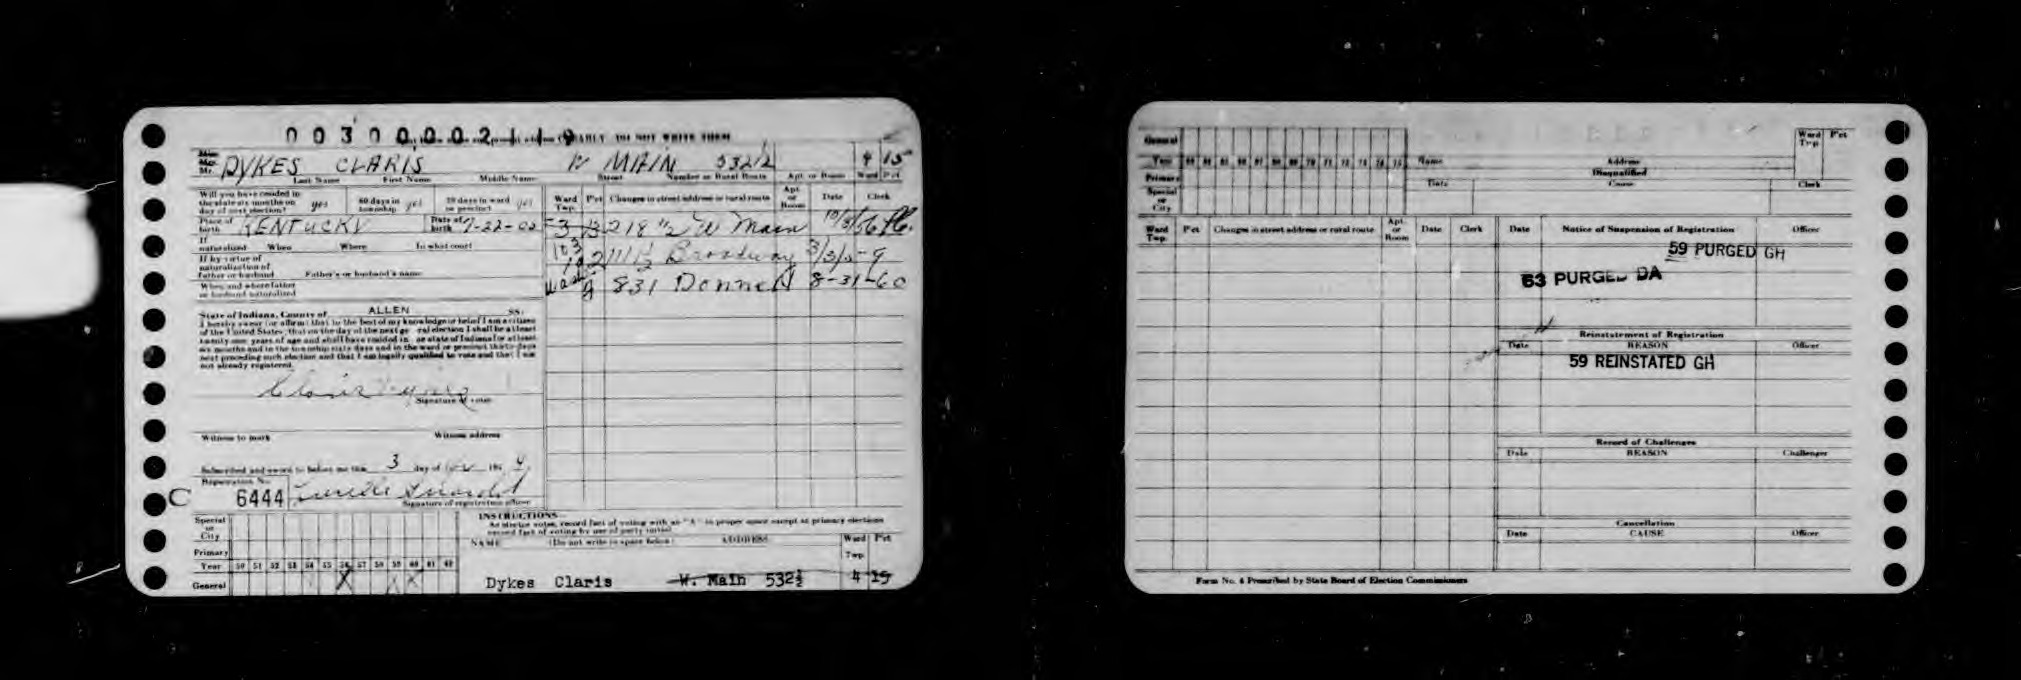 0 0 3 0 0 0 0 2 1 1 9 EARLY DO NOT WRITE THEM
Miss
Mrs.
Mr. DYKES CLARIS W MAIN 532½ 4 15
Last Name First Name Middle Name Street Number or Rural Route Apt. or Room Ward Pct
Will you have resided in the state six months on day of next election? yes 60 days in township yes 30 days in ward or precinct yes
Ward Twp. Pct Changes in street address or rural route Apt. or Room Date Clerk
Place of birth KENTUCKY Date of birth 7-22-02
3 13 218 ½ W Main 10/5/56
If naturalized When Where In what court
111½ Broadway
If by virtue of naturalization of father or husband Father's or husband's name
Wash A 831 Donnell 8-31-60
When and where father or husband naturalized
State of Indiana, County of ALLEN SS:
I hereby swear (or affirm) that to the best of my knowledge or belief I am a citizen
of the United States, that on the day of the next general election I shall be at least
twenty-one years of age and shall have resided in state of Indiana for at least
six months and in the township sixty days and in the ward or precinct thirty days
next preceding such election and that I am legally qualified to vote and that I am
not already registered.
Signature of voter
Witness to mark Witness address
Subscribed and sworn to before me this 3 day of 195 4
Registration No.
C 6444
Signature of registration officer
INSTRUCTIONS
As elector votes, record fact of voting with an "X" in proper space except at primary elections
record fact of voting by use of party initial.
Special or City
NAME (Do not write in space below) ADDRESS Ward Twp. Pct
Primary
Year 50 51 52 53 54 55 56 57 58 59 60 61 62
General X X X
Dykes Claris W. Main 532½ 4 15
General
Year 63 64 65 66 67 68 69 70 71 72 73 74 75
Primary
Special or City
Name Address Ward Twp. Pct
Disqualified
Date Cause Clerk
Ward Twp. Pct Changes in street address or rural route Apt. or Room Date Clerk
Date Notice of Suspension of Registration Officer
59 PURGED GH
63 PURGED DA
Reinstatement of Registration
Date REASON Officer
59 REINSTATED GH
Record of Challenges
Date REASON Challenger
Cancellation
Date CAUSE Officer
Form No. 4 Prescribed by State Board of Election Commissioners